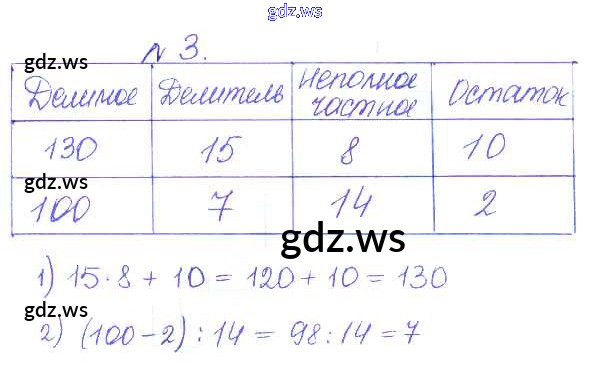 gdz.ws
№ 3.
gdz.ws
Делимое Делитель Неполное частное Остаток
130 15 8 10
gdz.ws
100 7 14 2
gdz.ws
1) 15·8 + 10 = 120 + 10 = 130
gdz.ws
2) (100-2) : 14 = 98 : 14 = 7
gdz.ws